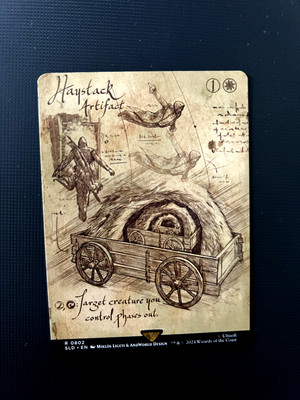 Haystack
Artifact
2, : Target creature you
control phases out.
R 0802
SLD • EN Miklós Ligeti & AndWorld Design
™ & © 2024 Wizards of the Coast
Ubisoft